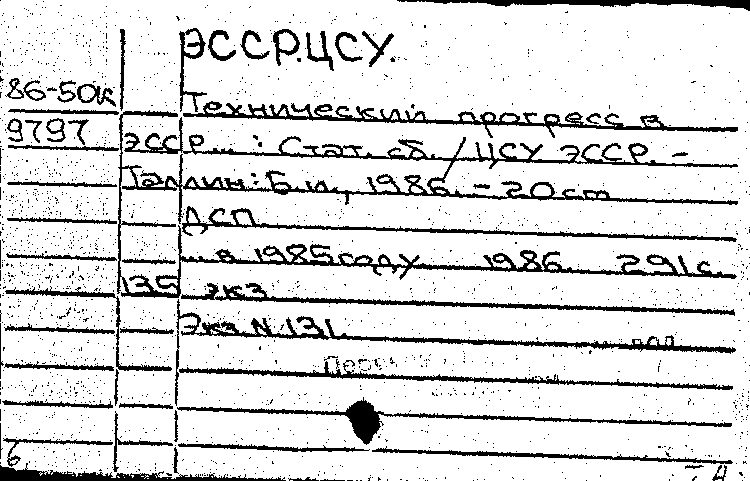 ЭССР.ЦСУ.
86-50к
Технический прогресс в
9797
ЭССР... : Стат. сб. / ЦСУ ЭССР. -
Таллин: Б.и., 1986. - 20 cm
ДСП
... в 1985 году 1986. 291 с.
135 экз
Экз N 131.
6